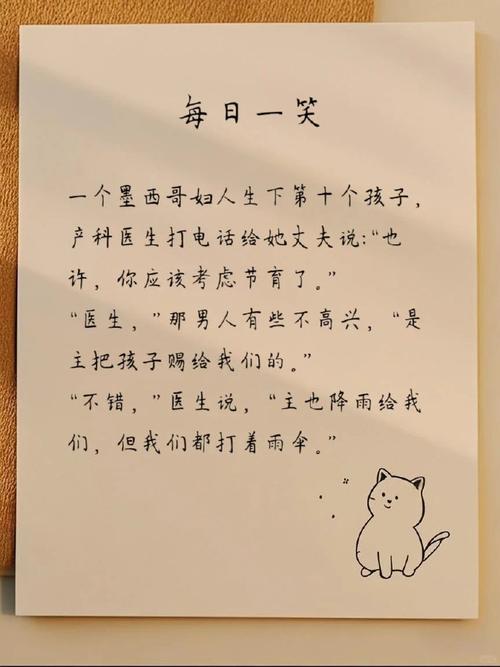 每日一笑
一个墨西哥妇人生下第十个孩子，
产科医生打电话给她丈夫说：“也
许，你应该考虑节育了。”
“医生，”那男人有些不高兴，“是
主把孩子赐给我们的。”
“不错，”医生说，“主也降雨给我
们，但我们都打着雨伞。”